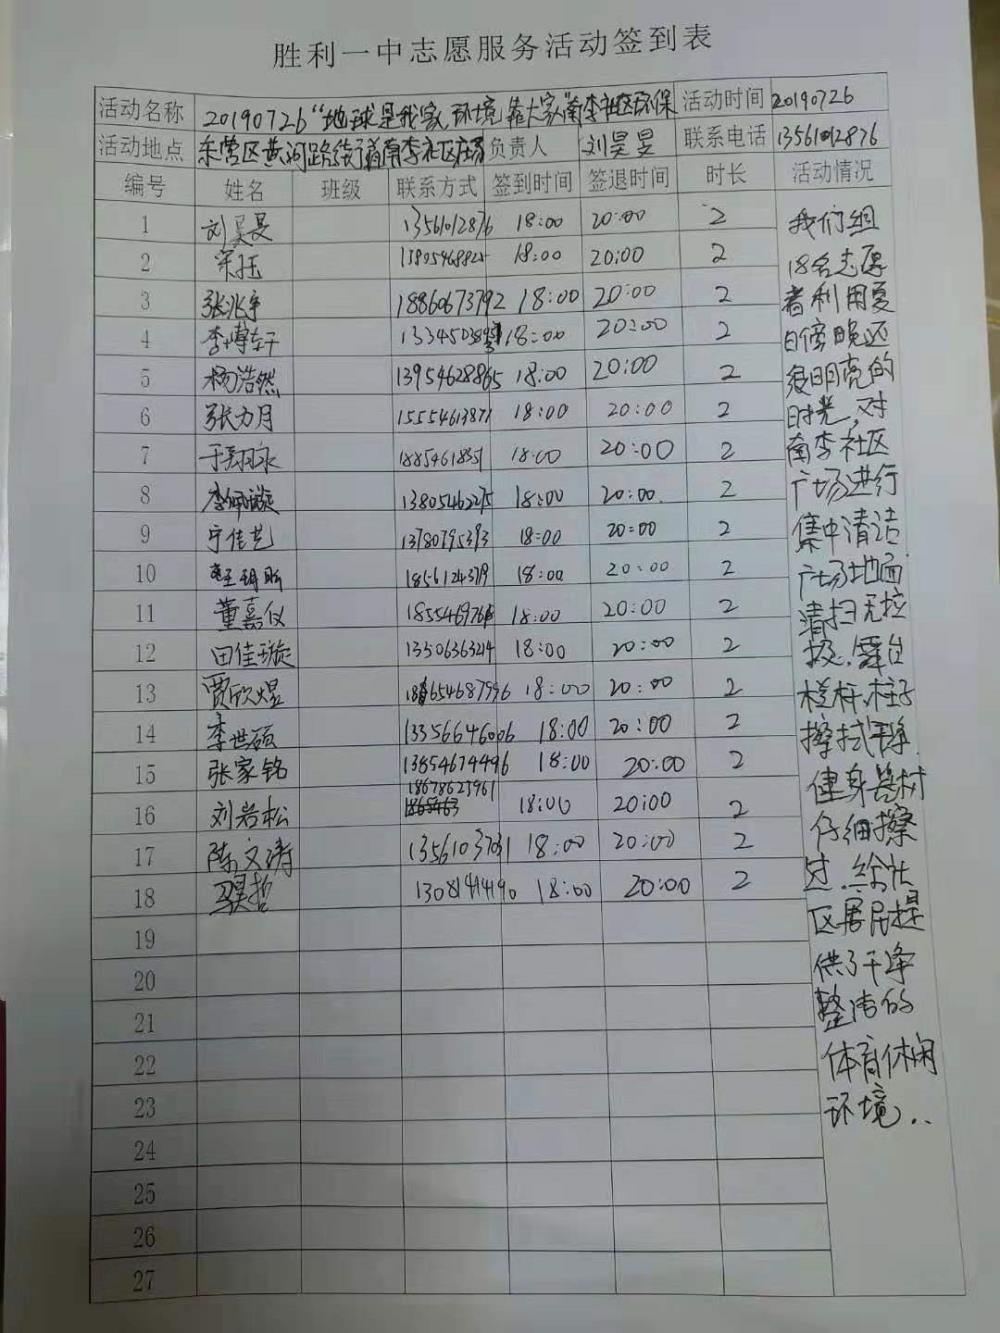 胜利一中志愿服务活动签到表
活动名称 20190726“地球是我家,环境靠大家”南李社区环保 活动时间 20190726
活动地点 东营区黄河路街道南李社区广场 负责人 刘昊昱 联系电话 13561012876
编号 姓名 班级 联系方式 签到时间 签退时间 时长 活动情况
1 刘昊昱 13561012876 18:00 20:00 2
2 18:00 20:00 2
3 张兆宇 18860673792 18:00 20:00 2
4 李博轩 18:00 20:00 2
5 杨浩然 13954628865 18:00 20:00 2
6 张力月 15554613871 18:00 20:00 2
7 18:00 20:00 2
8 李佩璇 13805462275 18:00 20:00 2
9 宁佳艺 13780795393 18:00 20:00 2
10 18:00 20:00 2
11 董嘉仪 18:00 20:00 2
12 田佳璇 18:00 20:00 2
13 贾欣煜 18:00 20:00 2
14 李世硕 13356646006 18:00 20:00 2
15 张家铭 13854674496 18:00 20:00 2
16 刘岩松 18678623961 18:00 20:00 2
17 陈文涛 13561037031 18:00 20:00 2
18 18:00 20:00 2
19
20
21
22
23
24
25
26
27
我们组
18名志愿
者利用夏
日傍晚还
很明亮的
时光,对
南李社区
广场进行
集中清洁
广场地面
清扫无垃
圾、舞台
栏杆、柱子
擦拭干净
健身器材
仔细擦
过.给社
区居民提
供了干净
整洁的
体育休闲
环境..